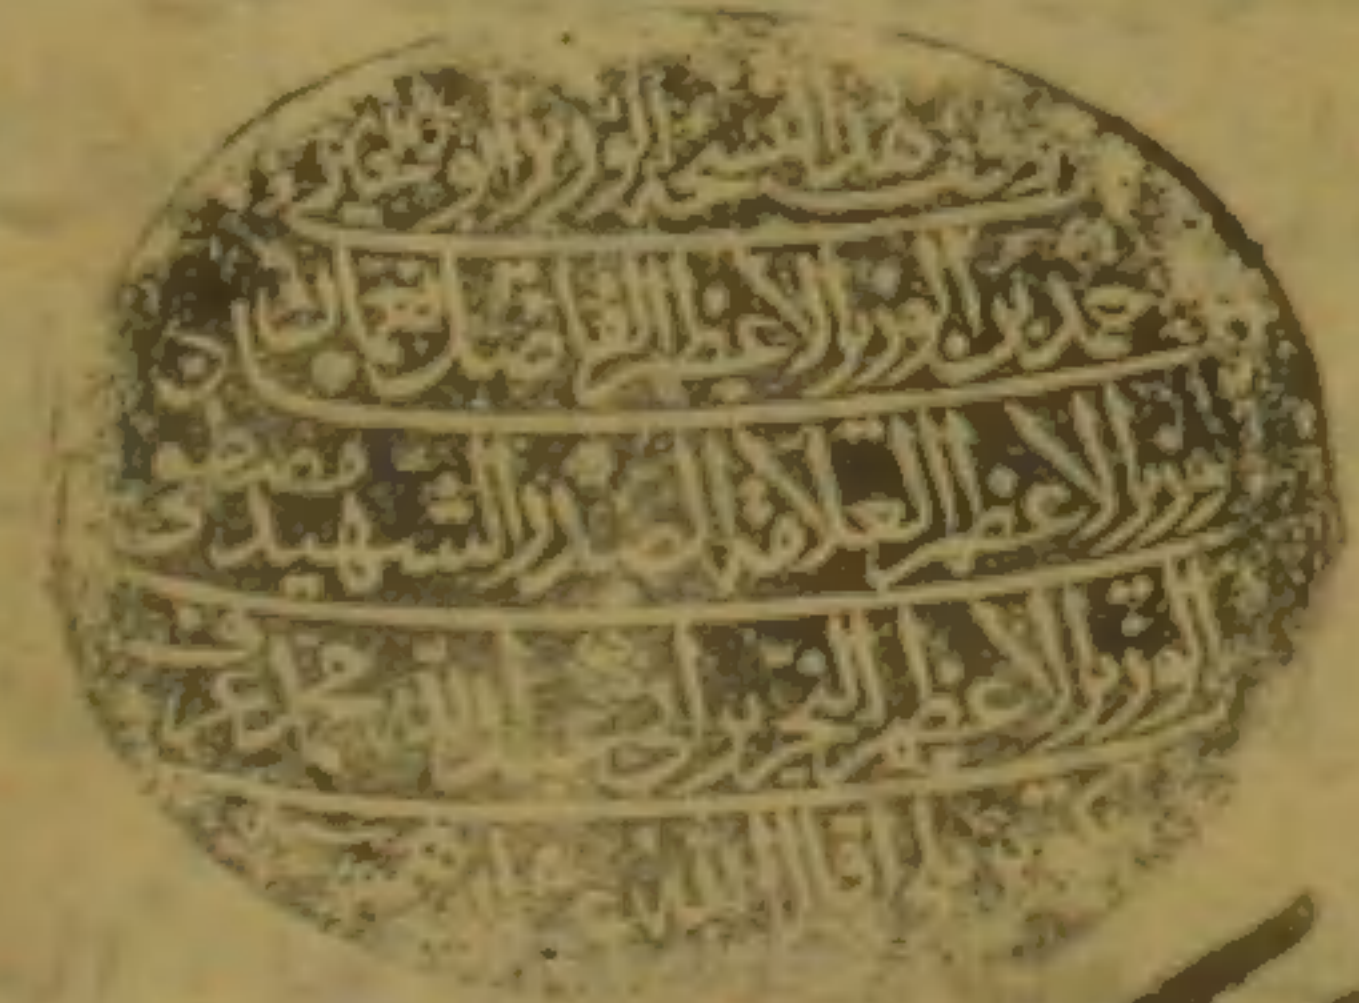 وقف هذا النسخة الوزير ابو العباس
احمد بن الوزير الاعظم الفاضل نعمان بن
وزير الاعظم العلامة الصدر الشهيد مصطفى
بن الوزير الاعظم النحرير ابى عبد الله محمد عرف
اقال الله